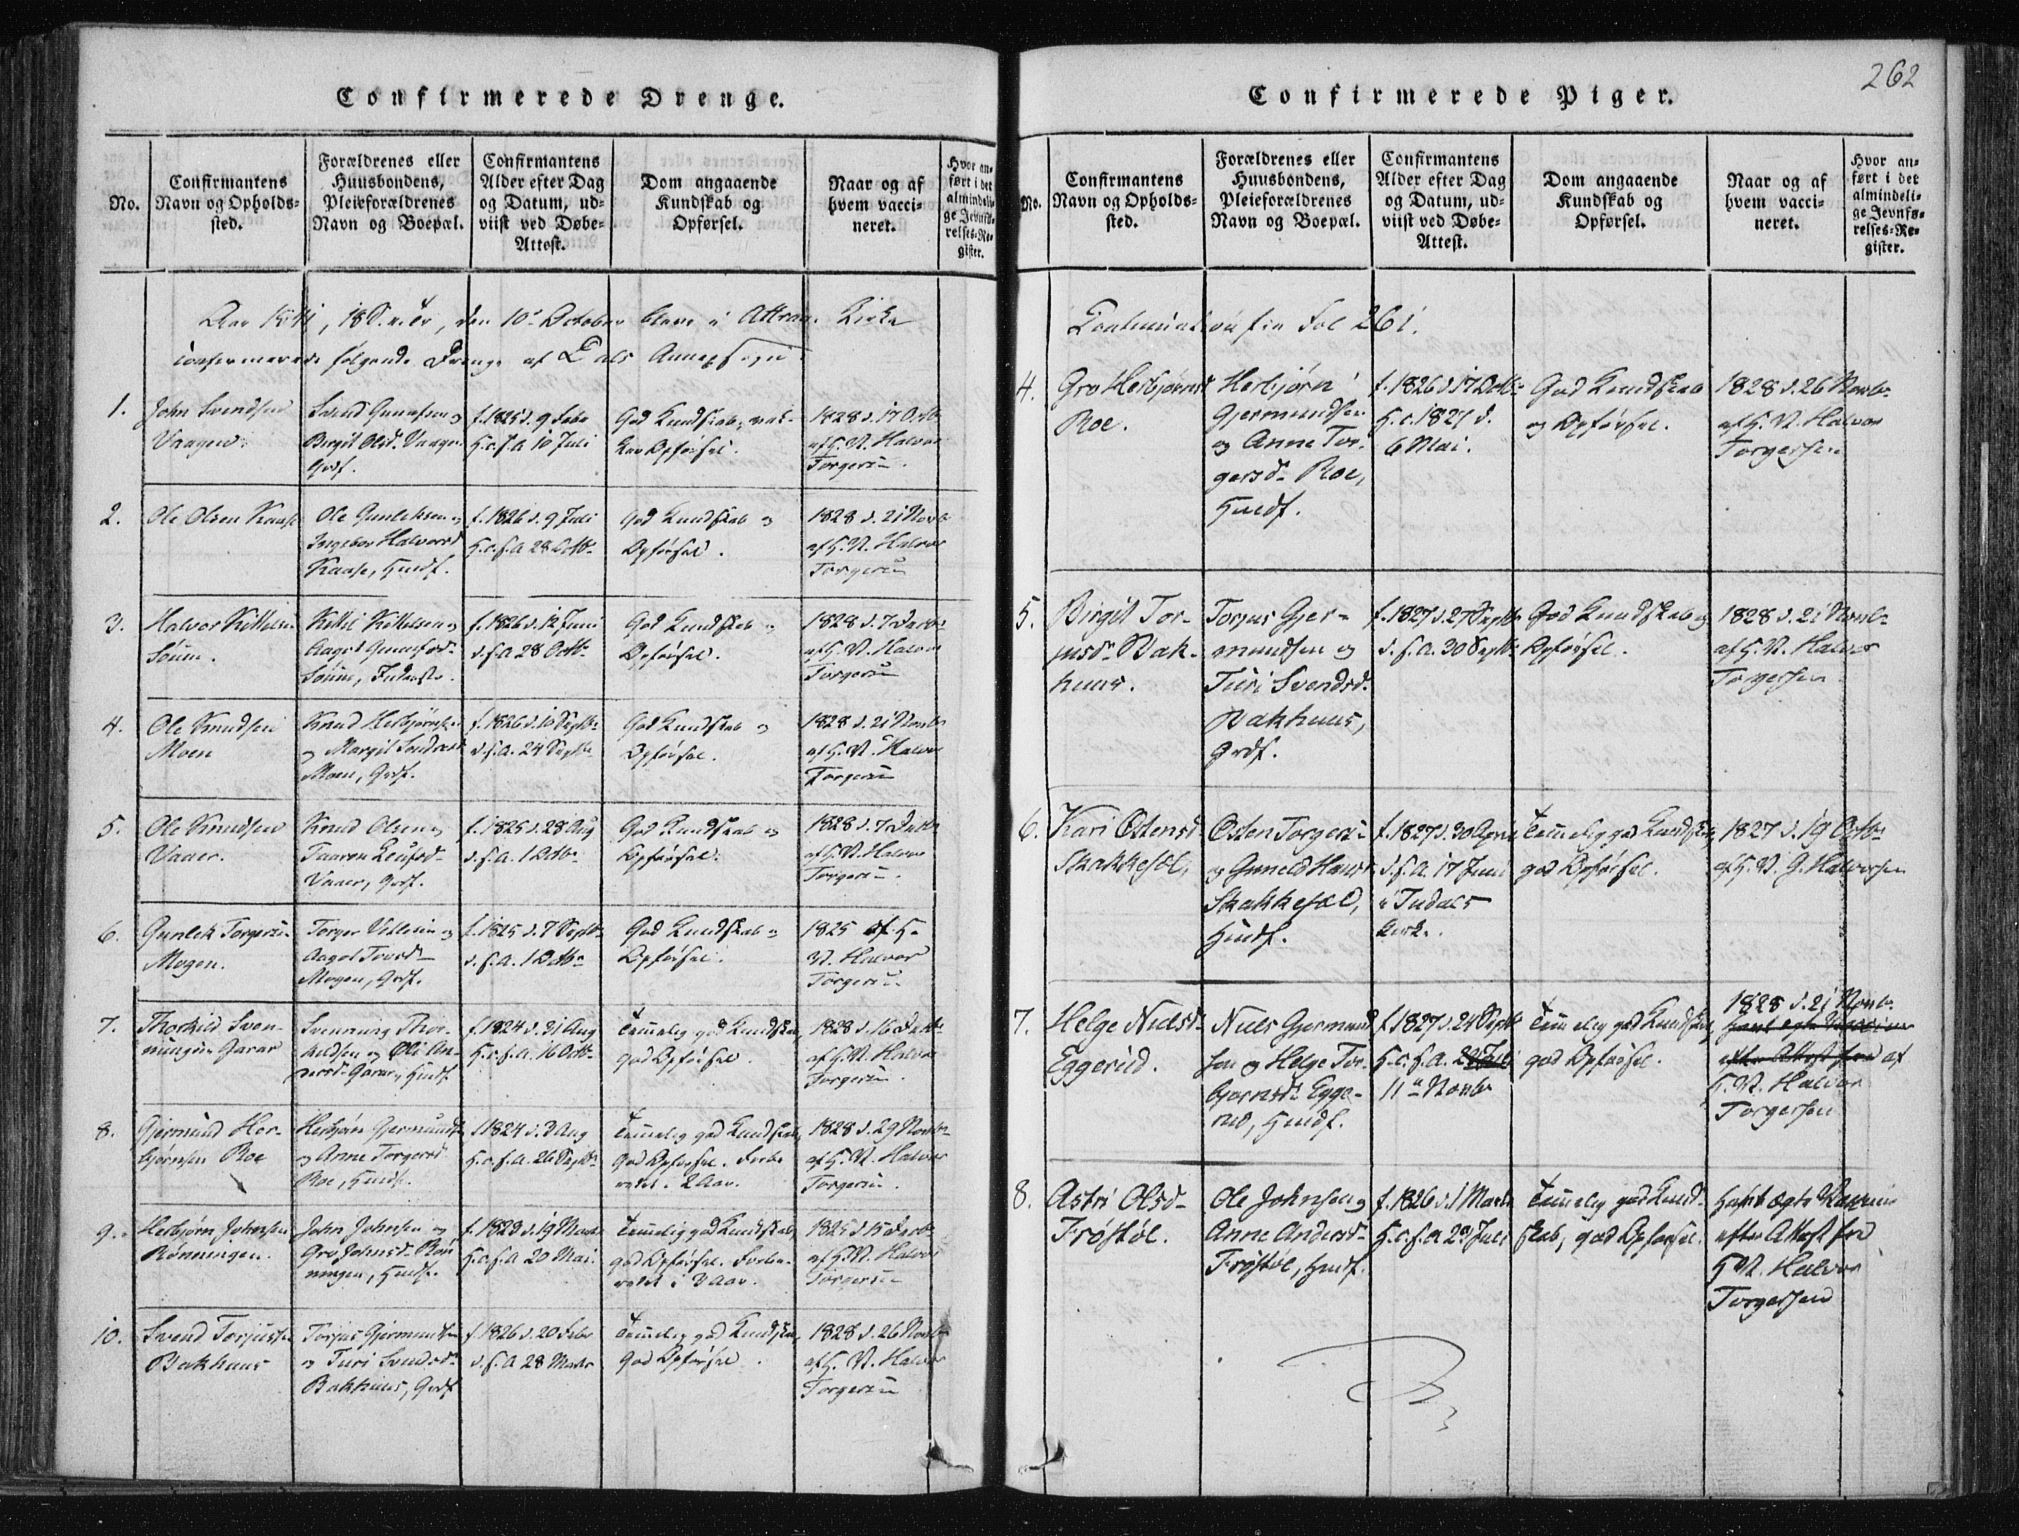 262
Confirmerede Drenge.
No.
Confirmantens
Navn og Opholds-
sted.
Forældrenes eller
Huusbondens,
Pleieforældrenes
Navn og Boepæl.
Confirmantens
Alder efter Dag
og Datum, ud-
viist ved Døbe-
Attest.
Dom angaaende
Kundskab og
Opførsel.
Naar og af
hvem vacci-
neret.
Hvor an-
ført i det
almindeli-
ge Jevnfø-
relses-Re-
gister.
Aar 1841, den 10de October blev i Kirke
confirmerede følgende Drenge af Dals Annexsogn
1.
John Svendsen
Vaagen
Svend Gunufsen og
Birgit Olsd. Vaagen
Grdf.
f. 1825 d. 9 Febr
H.c.s.A 10 Juli
God Kundskab, vak-
ker Opførsel.
1828 d. 17 Octb
af H. N. Halvor
Torgersen.
2.
Ole Olsen Kaase
Ole Gunleksen og
Ingebor Halvorsd
Kaase, Huusf.
f. 1826 d. 9 Juli
H.c.s.A 28 Octb
God Kundskab og
Opførsel.
1828 d. 21 Novb
af H. N. Halvor
Torgersen
3.
Halvor Kittilsen
Kittil Kittelsen og
Aagot
f. 1826 d. 12 Juni
d.s.A 28 Octb
God Kundskab og
Opførsel.
1828 d. 7
af H. N. Halvor
Torgersen
4.
Ole Knudsen
Moen
Knud Herbjørnsen
og Margit
Moen, Grdf.
f. 1826 d. 10 Septb
d.s.A. 24 Septb
God Kundskab og
Opførsel.
1828 d. 21 Novb
af H. N. Halvor
Torgersen
5.
Ole Knudsen
Vaaer.
Knud Olsen og
Vaaer, Grdf.
f. 1825 d. 28 Aug
d.s.A. 1 Octb
God Kundskab og
Opførsel.
1828 d. 7
af H. N. Halvor
Torgersen.
6.
Gunlek Torgersen
Mogen.
Torger og
Aagot
Mogen, Grdf.
f. 1825 d. 7 Septb
d.s.A. 1 Octb
God Kundskab og
Opførsel.
1825 af H.
N. Halvor
Torgersen.
7.
Thorkild Sven-
nungsen Garar
Svennung Thor-
kildsen og An-
dersd. Garar, Huusf.
f. 1824 d. 31 Aug
H.c.s.A. 16 Octb
Temmelig god Kundskab,
god Opførsel.
1828 d. 16
af H. N. Halvor
Torgersen.
8.
Gjermund Her-
bjørnsen Roe
Herbjørn Gjermunds
og Anne Torgersd
Roe, Huusf.
f. 1824 d. 3 Aug
H.c.s.A. 26 Septb
Temmelig god Kundskab,
god Opførsel. Forbe-
redet i 2 Aar.
1828 d. 29 Novb
af H. N. Halvor
Torgersen.
9.
Herbjørn Johnsen
Rønningen.
John Johnsen og
Gro Johnsd. Røn
ningen, Huusf.
f. 1823 d. 19 Marts
H.c.s.A 20 Mai
Temmelig god Kundskab,
god Opførsel. Forbe-
redet i 3 Aar.
1825 d. 15
af H. N. Halvor
Torgersen
10.
Svend Torjussen
Bakhuus
Torjus Gjermundsen
og Turi Svendsd
Bakhuus, Grdf
f. 1826 d. 20 Febr
d.s.A 28 Marts
Temmelig god Kundskab,
God Opførsel.
1828 d. 26 Novb
af H. N. Halvor
Torgersen
Confirmerede Piger.
No.
Confirmantens
Navn og Opholds-
sted.
Forældrenes eller
Huusbondens,
Pleieforældrenes
Navn og Boepæl.
Confirmantens
Alder efter Dag
og Datum, ud-
viist ved Døbe-
Attest.
Dom angaaende
Kundskab og
Opførsel.
Naar og af
hvem vacci-
neret.
Hvor an-
ført i det
almindeli-
ge Jevnfø-
relses-Re-
gister.
fra Fol 261.
4.
Gro Herbjørnsd
Roe.
Herbjørn
Gjermundsen
og Anne Tor-
gersd Roe,
Huusf.
f. 1826 d. 17 Octb
H.c. 1827 d.
6 Mai.
God Kundskab
og Opførsel.
1828 d. 26 Novb
af H. N. Halvor
Torgersen
5.
Birgit Tor-
jusd Bak-
huus.
Torjus Gjer-
mundsen og
Turi Svendsd.
Bakhuus,
Grdf.
f. 1827 d. 27 Septb
d.s.A. 30 Septb
God Kundskab og
Opførsel.
1828 d. 21 Novb
af H. N. Halvor
Torgersen.
6.
Kari Østensd
Skakkesæl,
Østen Torgersen
og Gunild
Skakkesæl,
Huusf.
f. 1827 d. 30 April
d.s.A. 17 Juni
i Tudals
Kirke.
Temmelig god Kundskab,
god Opførsel.
1827 d. 19 Octb
af H. N. G. Halvorsen
7.
Helge Nielsd
Eggerud.
Niels Gjermund
sen og Helge Tor-
bjørnsd Egge-
rud, Huusf.
f. 1827 d. 24 Septb
H.c.s.A.
11te Novb
Temmelig god Kundskab,
god Opførsel.
1828 d. 21 Novb
havt ægte Vaccine
efter Attest fra af
H. N. Halvor
Torgersen
8.
Astri Olsd
Frøstøl.
Ole Johnsen og
Anne Andersd
Frøstøl, Huusf.
f. 1826 d. 1 Marts
H.c.s.A 2 Juli
Temmelig god Kund-
skab, god Opførsel.
Havt ægte Vaccine
efter Attest fra
H. N. Halvor
Torgersen